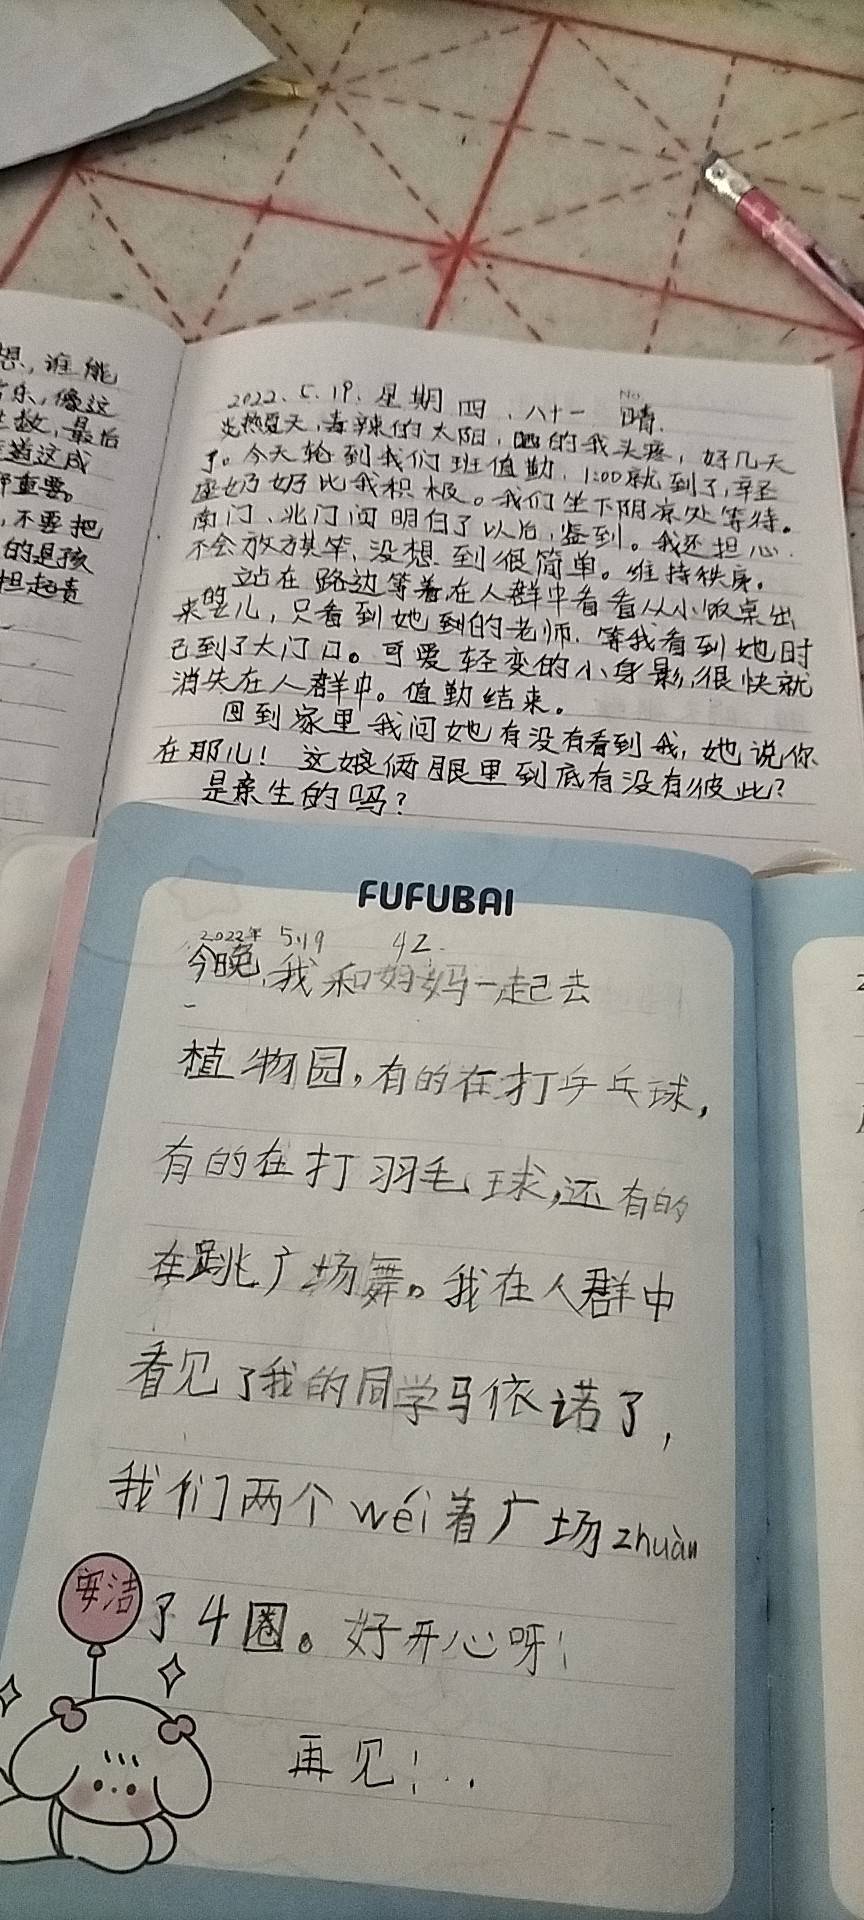 想,谁能
乐,像这
数,最后
道这成
重要。
,不要把
的是孩
担起责
No.
2022.5.19.星期四.八十一 晴.
炎热夏天,毒辣的太阳,晒的我头疼,好几天
了。今天轮到我们班值勤,1:00就到了,辛
奶奶比我积极。我们坐下阴凉处等待。
南门、北门问明白了以后,签到。我还担心.
不会放方其竿,没想到很简单。维持秩序。
站在路边等着,在人群中看着从小饭桌出
来的儿,只看到她到的老师.等我看到她时
已到了大门口。可爱轻变的小身影,很快就
消失在人群中。值勤结来。
回到家里我问她有没有看到我,她说你
在那儿!这娘俩眼里到底有没有彼此?
是亲生的吗?
FUFUBAI
2022年 5.19 42.
今晚,我和妈妈一起去
植物园,有的在打乒乓球,
有的在打羽毛球,还有的
在跳广场舞。我在人群中
看见了我的同学马依诺了,
我们两个wéi着广场zhuàn
安洁
了4圈。好开心呀!
再见!..